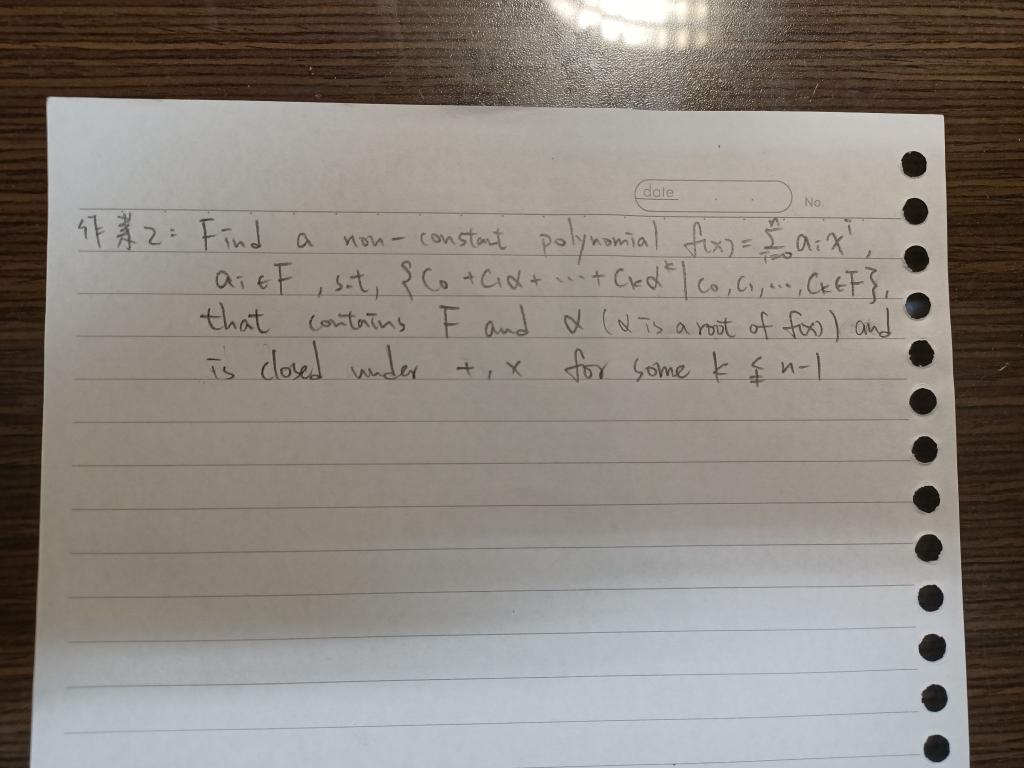 date
No.
作業2: Find a non-constant polynomial f(x)=∑_{i=0}^{n} a_i x^i,
a_i ∈ F, s.t, {C_0 + C_1α + ⋯ + C_kα^k | C_0, C_1, ⋯, C_k ∈ F},
that contains F and α (α is a root of f(x)) and
is closed under +, × for some k ≨ n-1